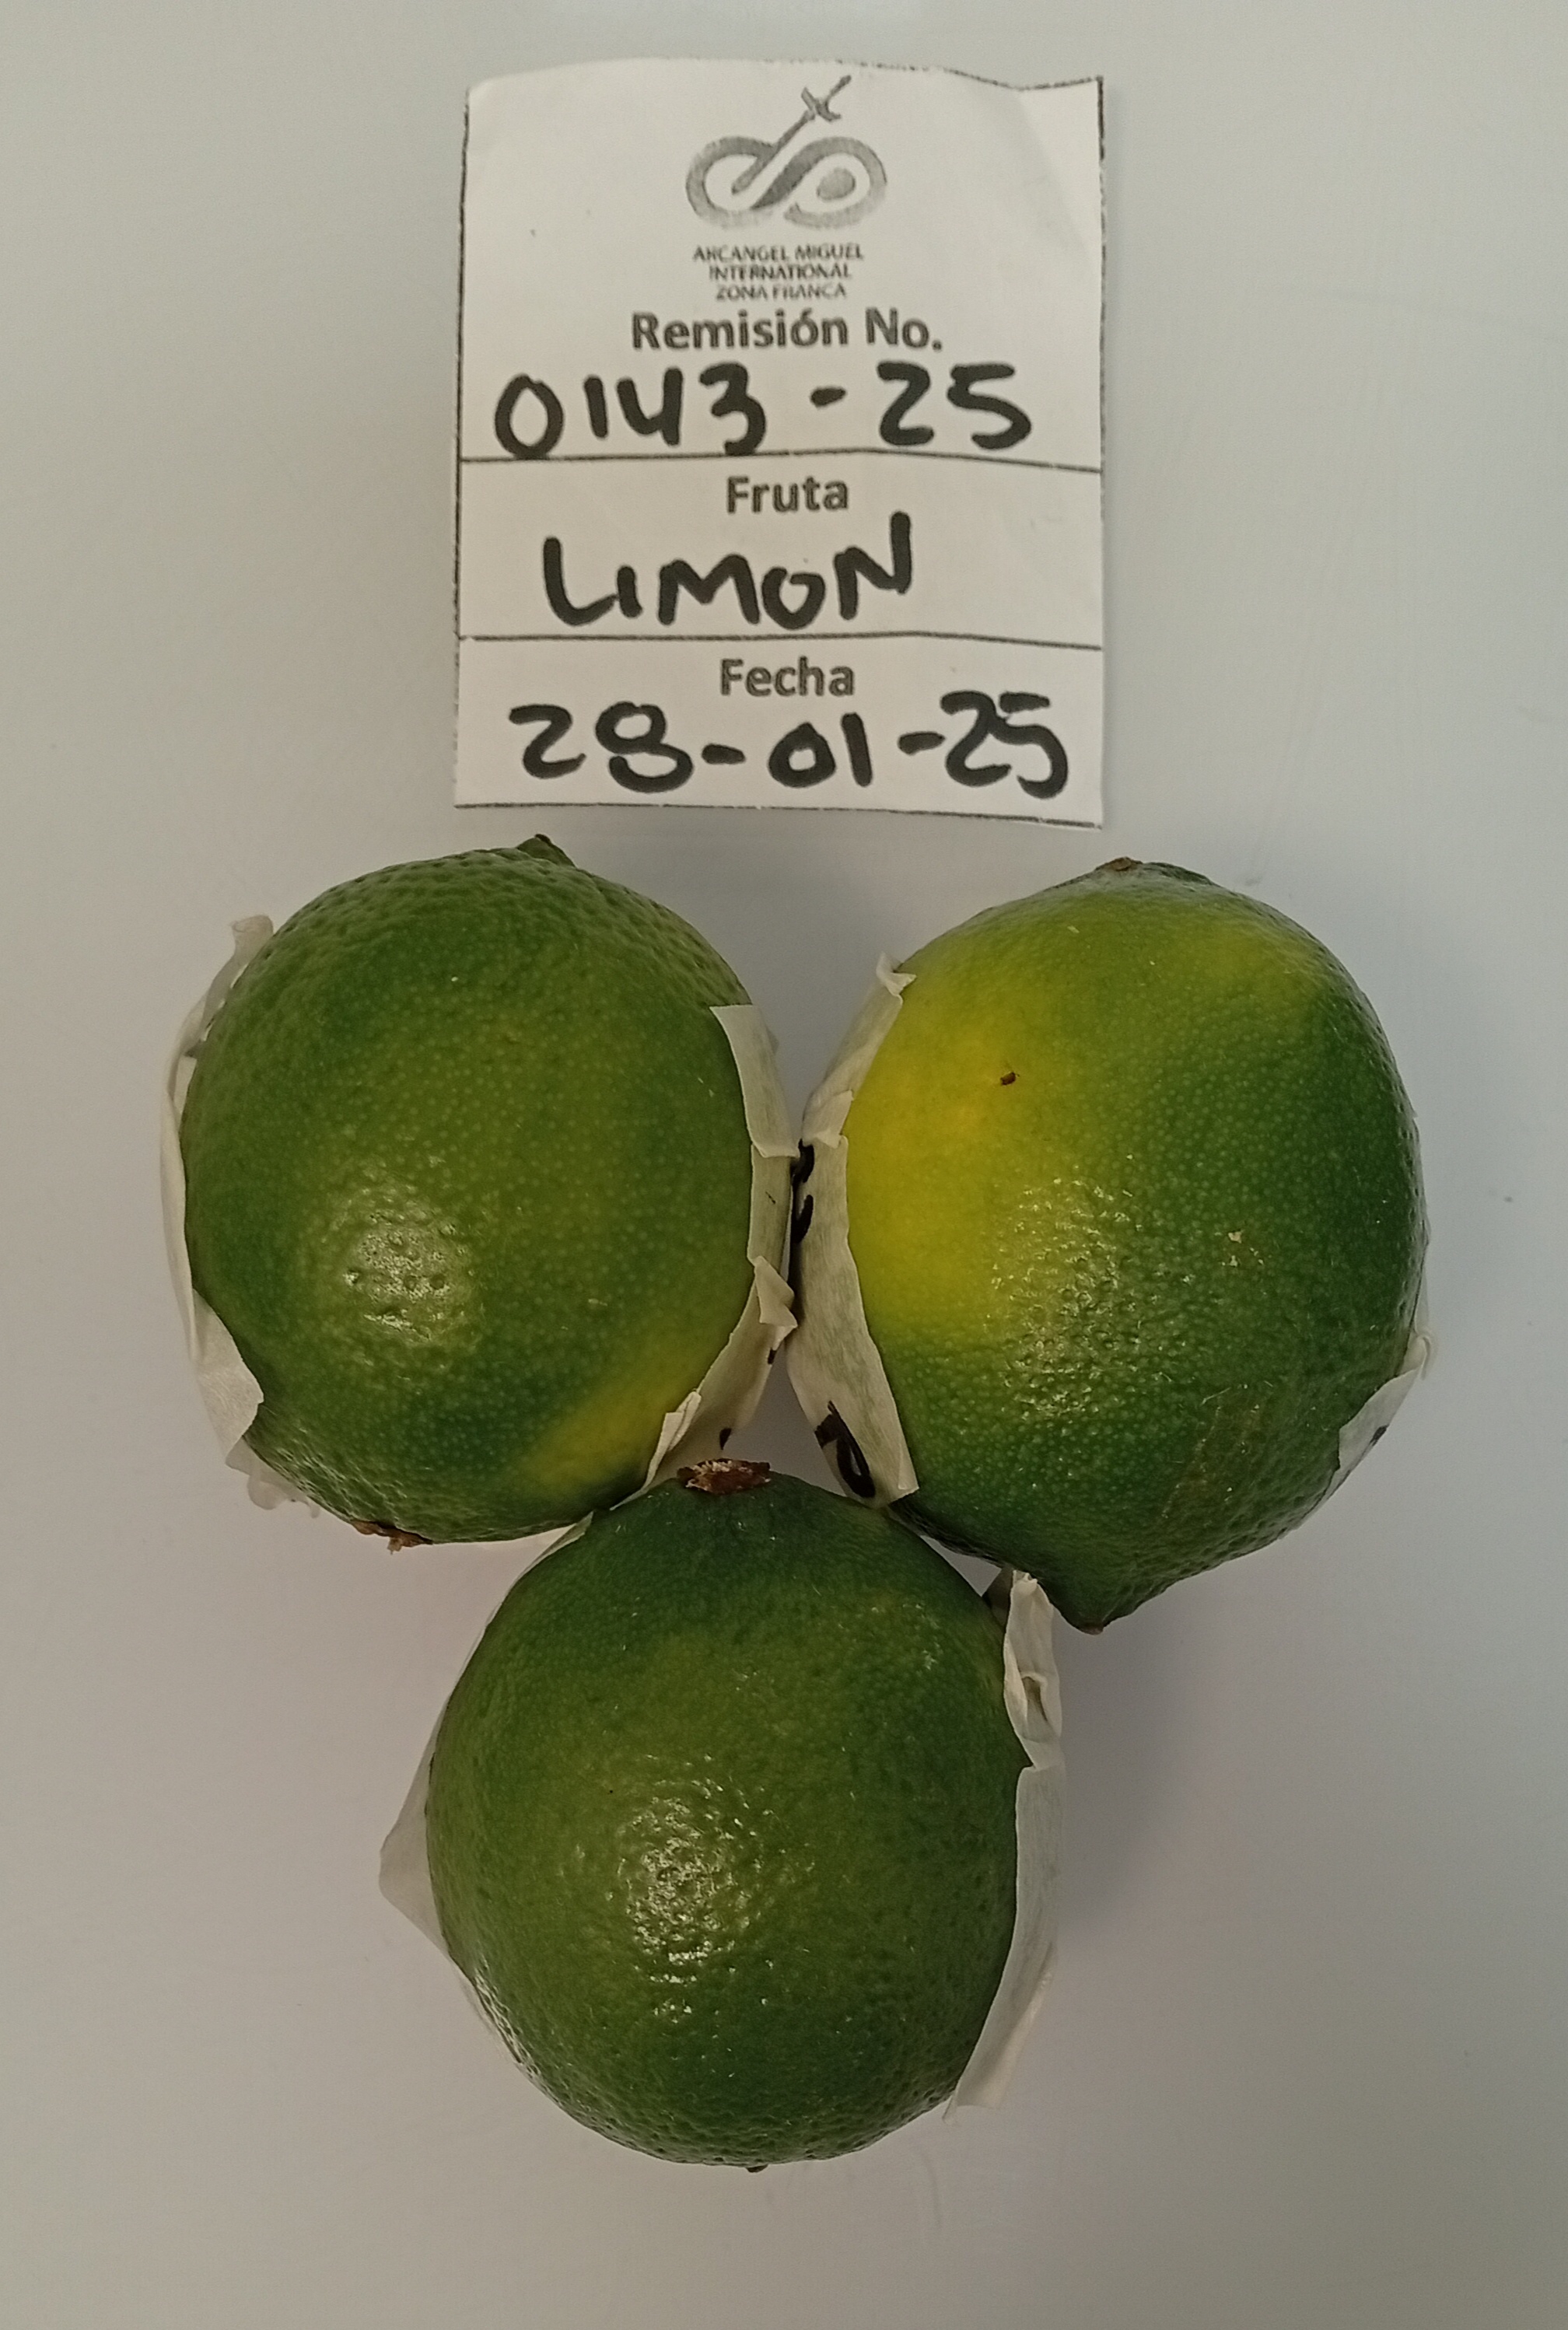 ARCANGEL MIGUEL
INTERNATIONAL
ZONA FRANCA
Remisión No.
0143-25
Fruta
LIMON
Fecha
28-01-25